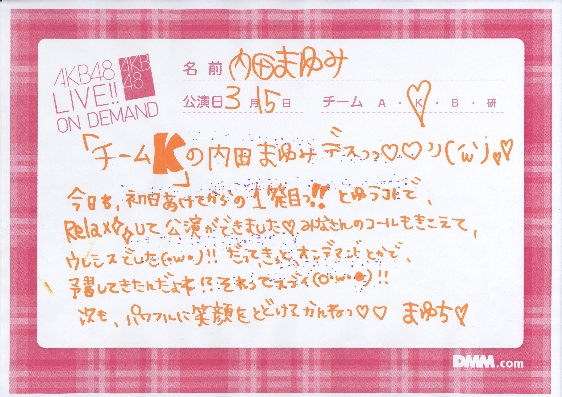 AKB48
LIVE!!
ON DEMAND
AKB
48
名前 内田まゆみ
公演日 3月15日 チーム A・K・B・研
「チームKの内田まゆみデスっっ♡♡ッ(´ω`)♡♡」
今日も、初日あけてからの1発目っ!! とゆうコトで、
Relaxして公演ができました♡ みなさんのコールもきこえて、
ウレシスでした(・ω・)!! だってきっと、オンデマンドとかで、
予習してきたんだよネ!? それってステディ(○・ω・●)!!
次も、パワフルに笑顔をとどけてかんねっ♡♡ まゆち♡
DMM.com